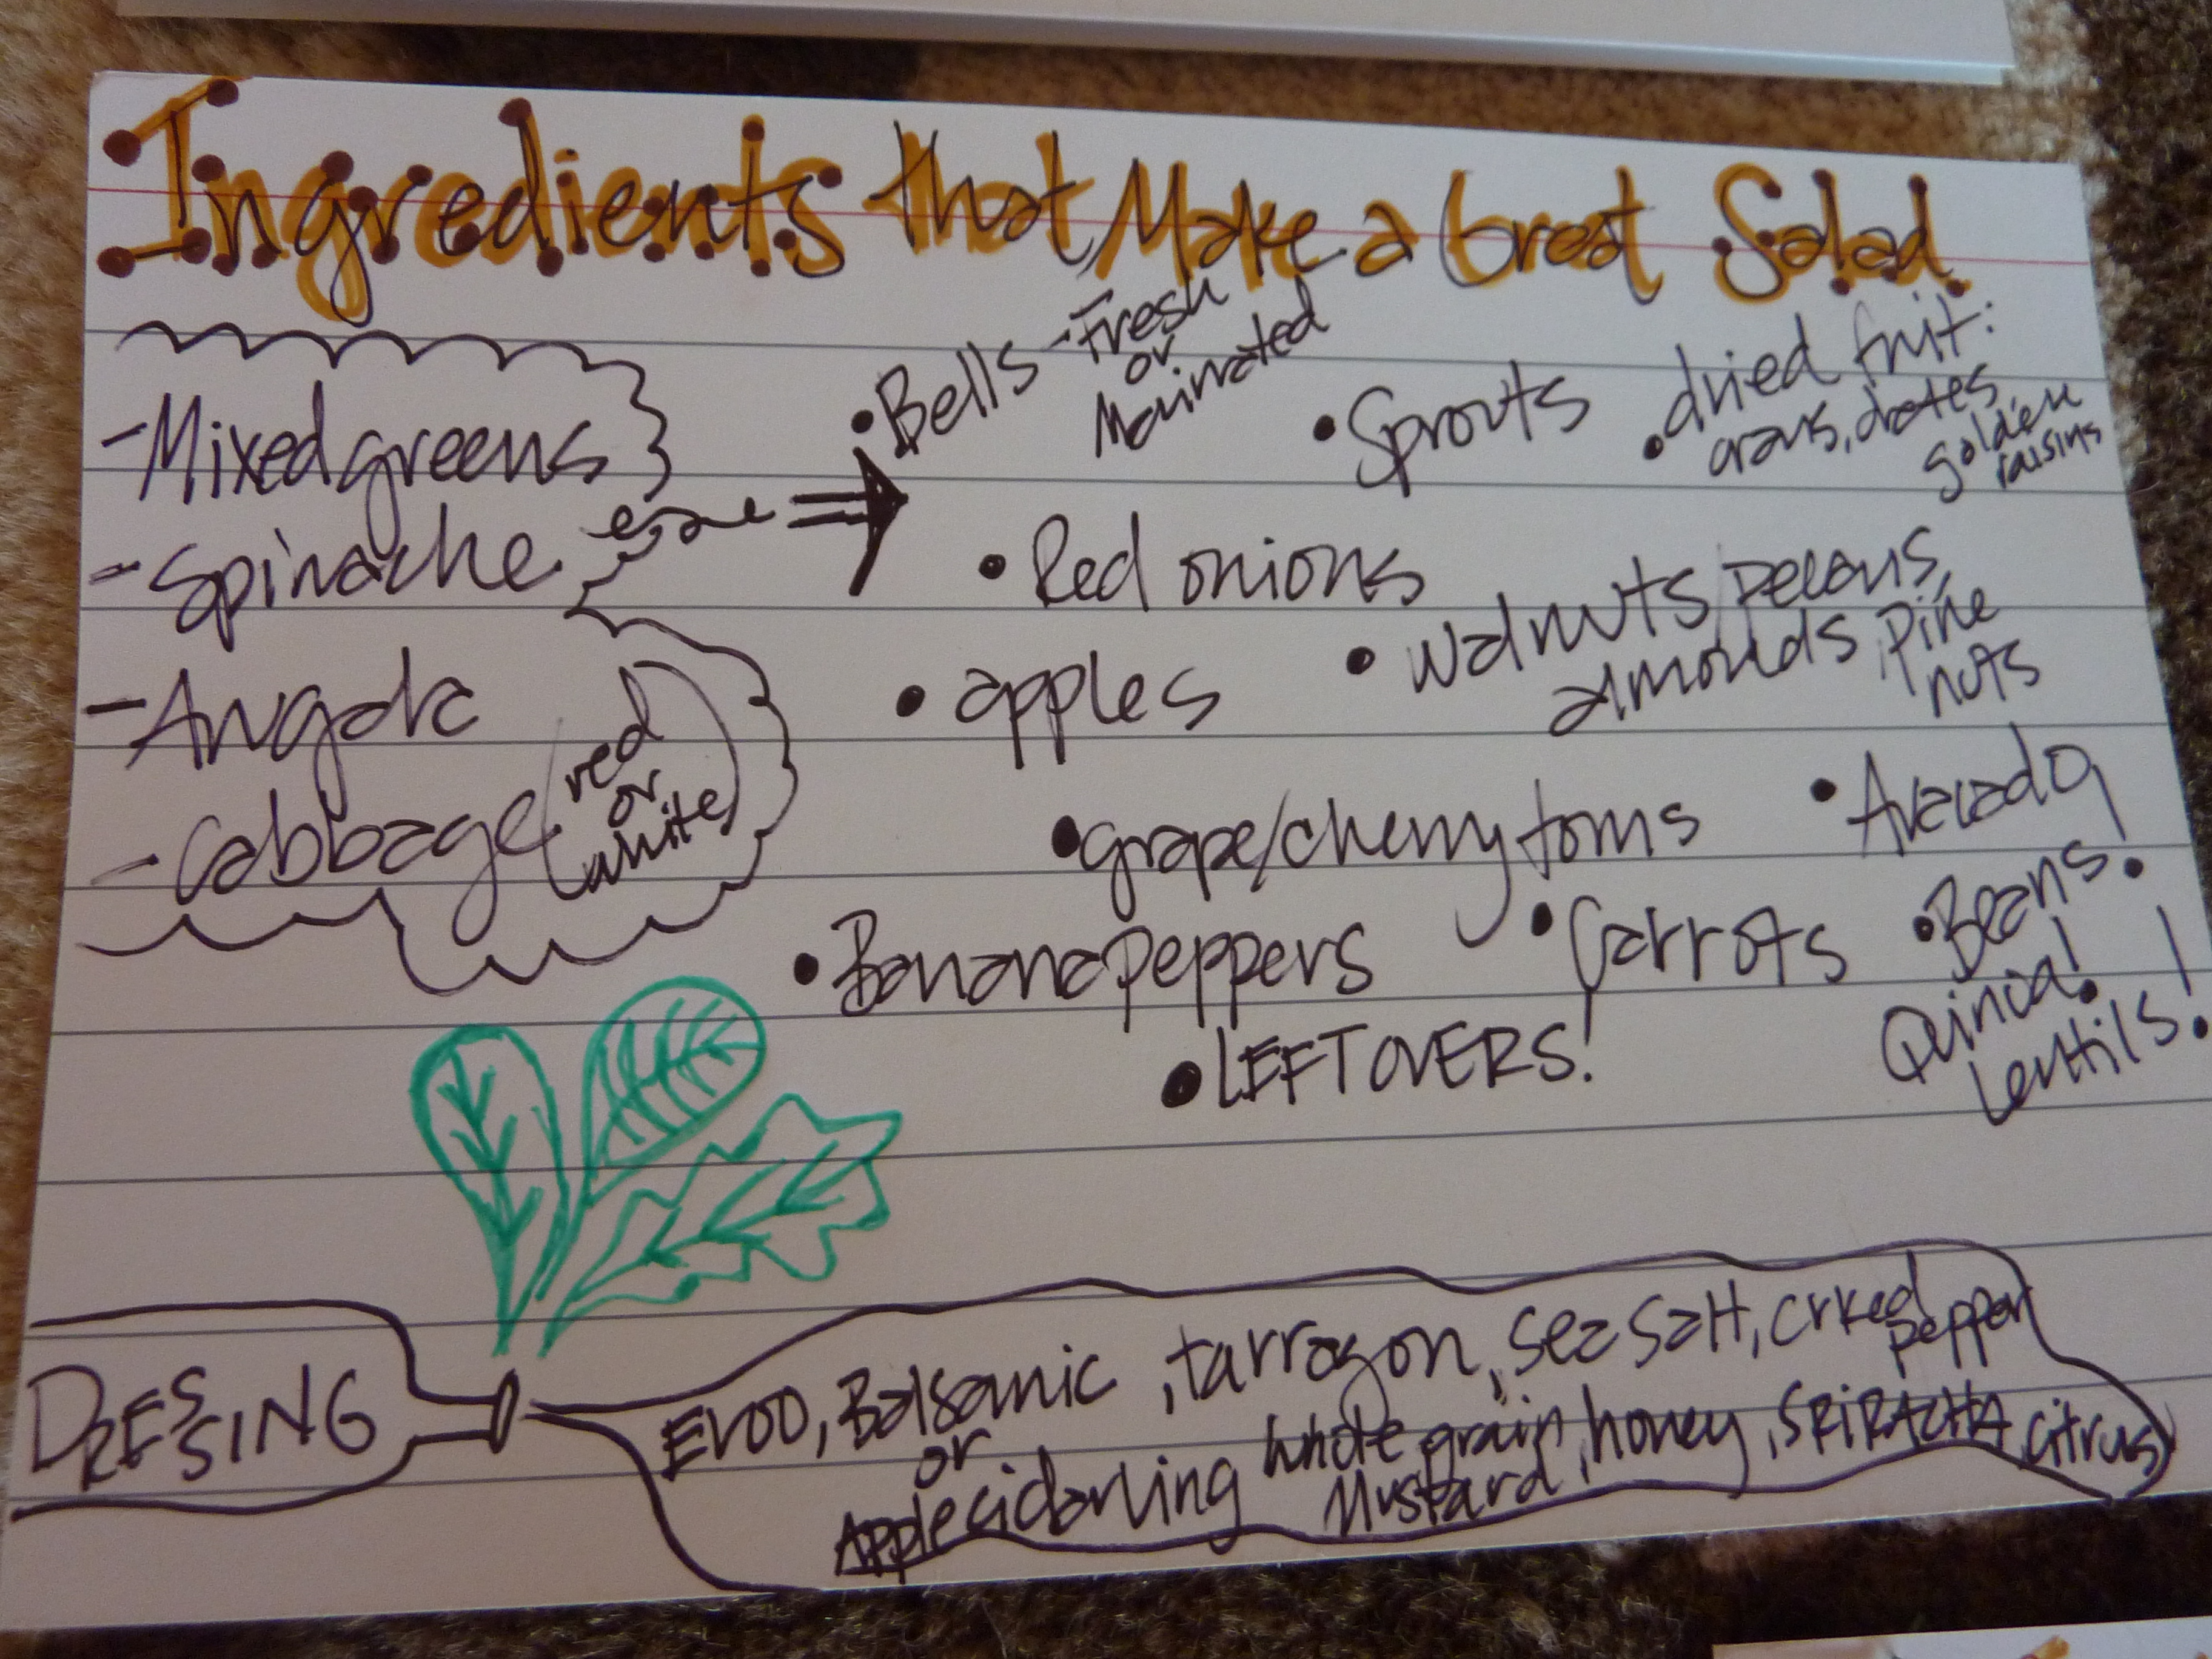 Ingredients that Make a Great Salad
- Mixed greens
- Spinache
- Cabbage (red
or
white)
• Bells - Fresh
or
Marinated
• Sprouts
• dried fruit:
crans, dates
golden
raisins
• Red onions
• walnuts/pecans,
almonds, pine
nuts
• apples
• grape/cherry toms
• Avacado!
• Banana peppers
• Carrots
• Beans!
Quinoa!
Lentils!
• LEFTOVERS!
DRESSING
EVOO, Balsamic, tarragon, sea salt, crked
pepper
or
Apple cidar whole grain
Mustard, honey, SRIRACHA, citrus